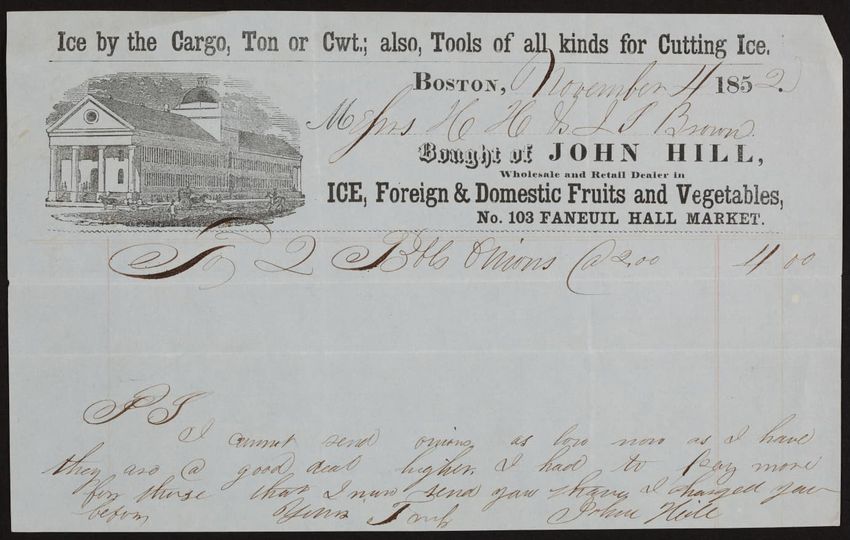 Ice by the Cargo, Ton or Cwt.; also, Tools of all kinds for Cutting Ice.
Boston, November 4 1852.
Messrs H H & J S Brown
Bought of JOHN HILL,
Wholesale and Retail Dealer in
ICE, Foreign & Domestic Fruits and Vegetables,
No. 103 FANEUIL HALL MARKET.
To 2 Bbls Onions @ 2.00 4 00
P S
I cannot send onions as low now as I have
they are a good deal higher. I had to pay more
for those that I now send you than I charged you
before Yours Truly John Hill